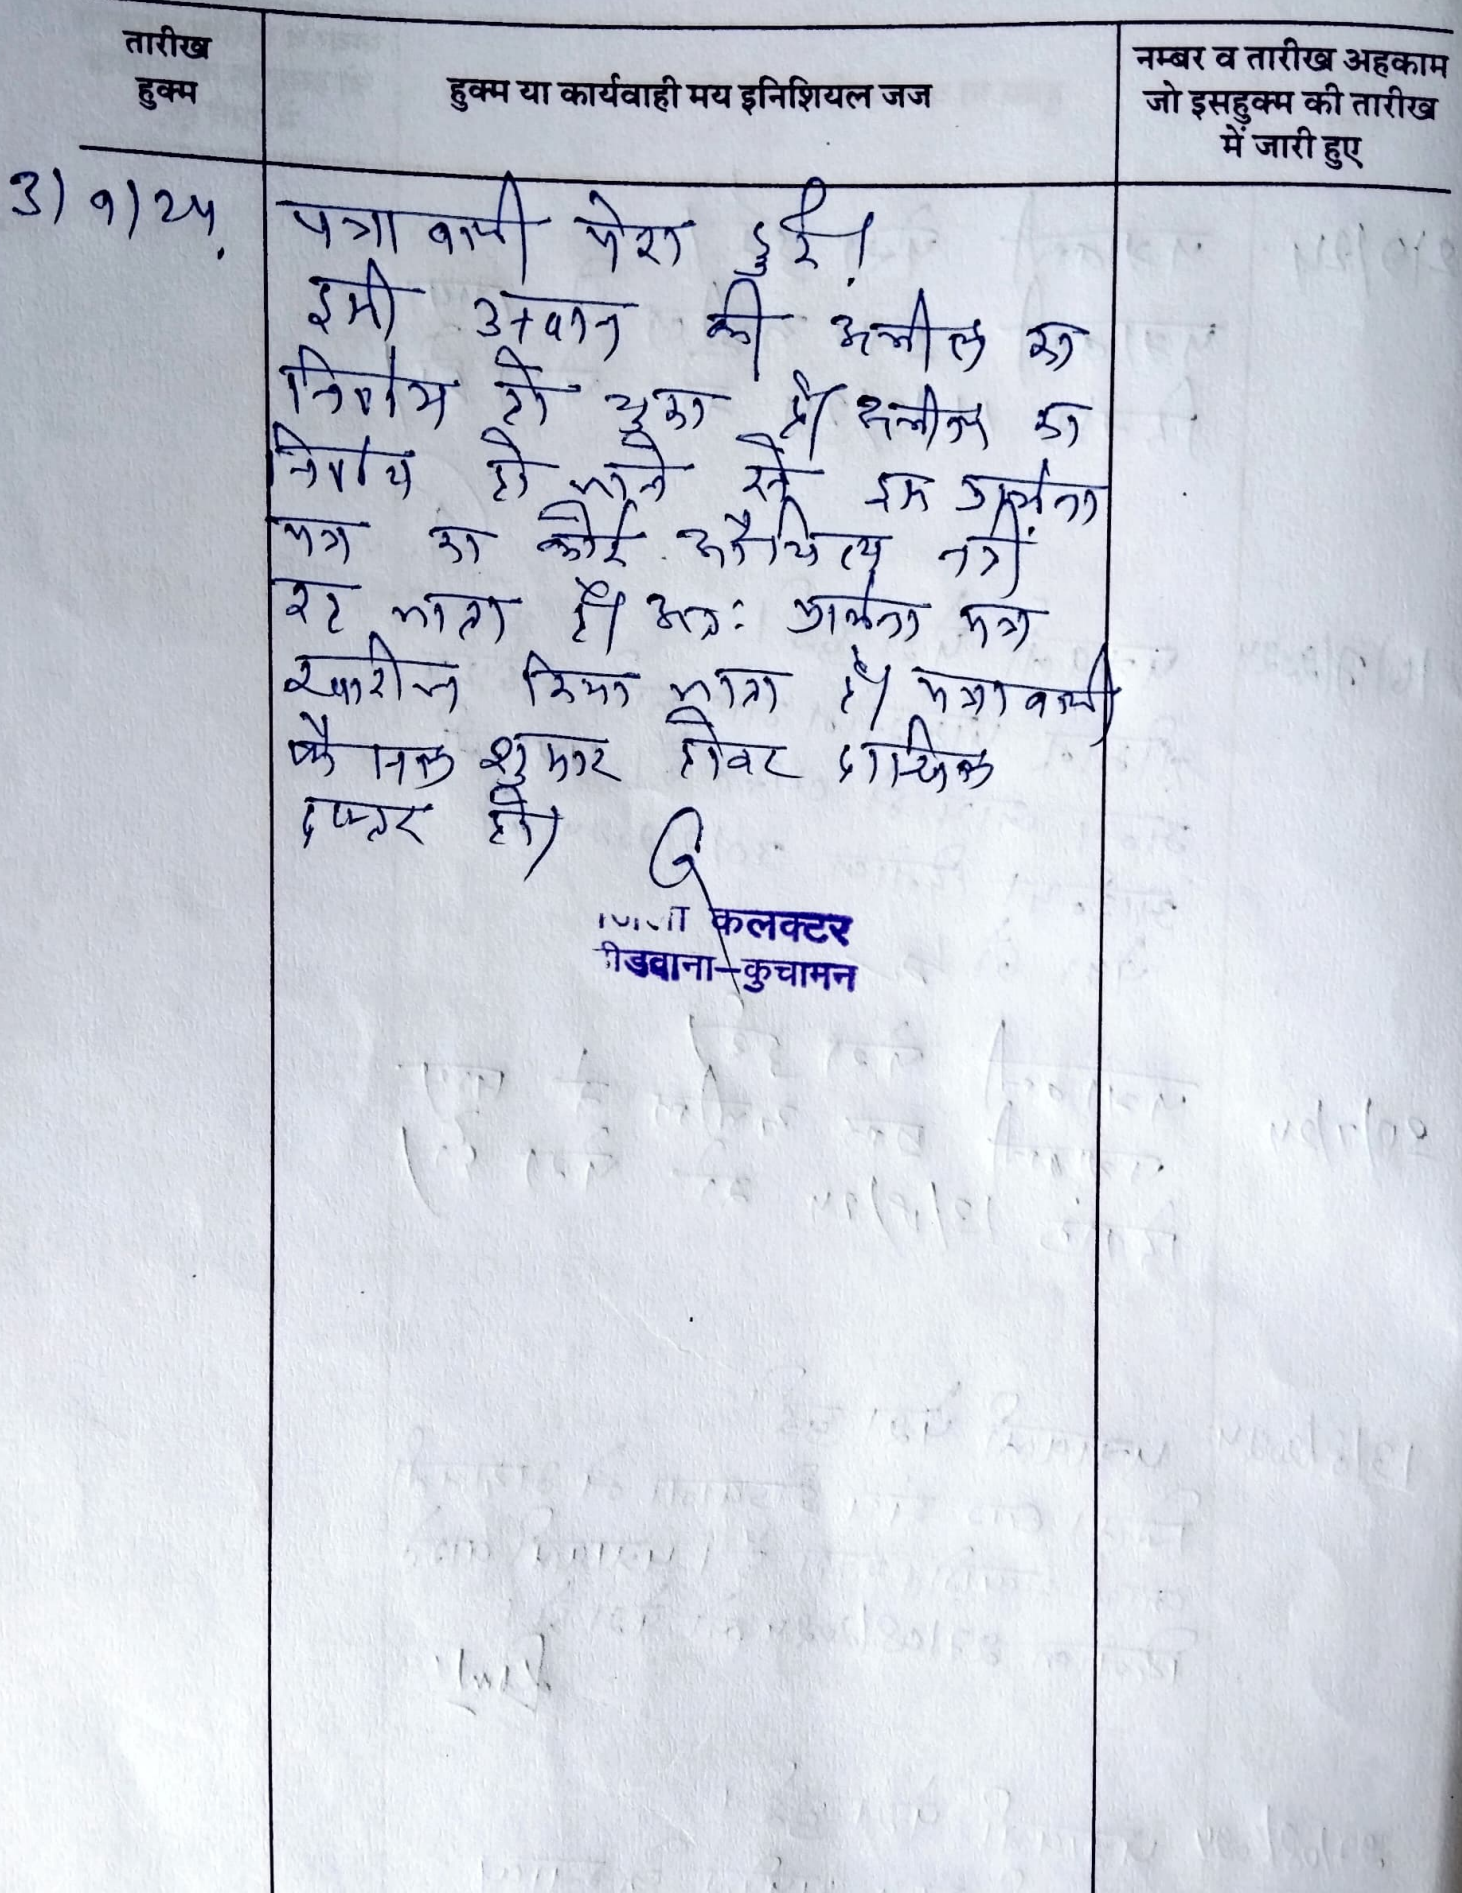 तारीख
हुक्म
हुक्म या कार्यवाही मय इनिशियल जज
नम्बर व तारीख अहकाम
जो इसहुक्म की तारीख
में जारी हुए
पत्रावली पेश हुई।
इसी उनवान की अपील का
निर्णय हो चुका है। अपील का
निर्णय हो जाने से इस प्रार्थना
पत्र का कोई औचित्य नहीं
रह जाता है। अतः प्रार्थना पत्र
खारीज किया जाता है। पत्रावली
फैसल शुमार होकर दाखिल
दफ्तर हो।
कलक्टर
डीडवाना-कुचामन